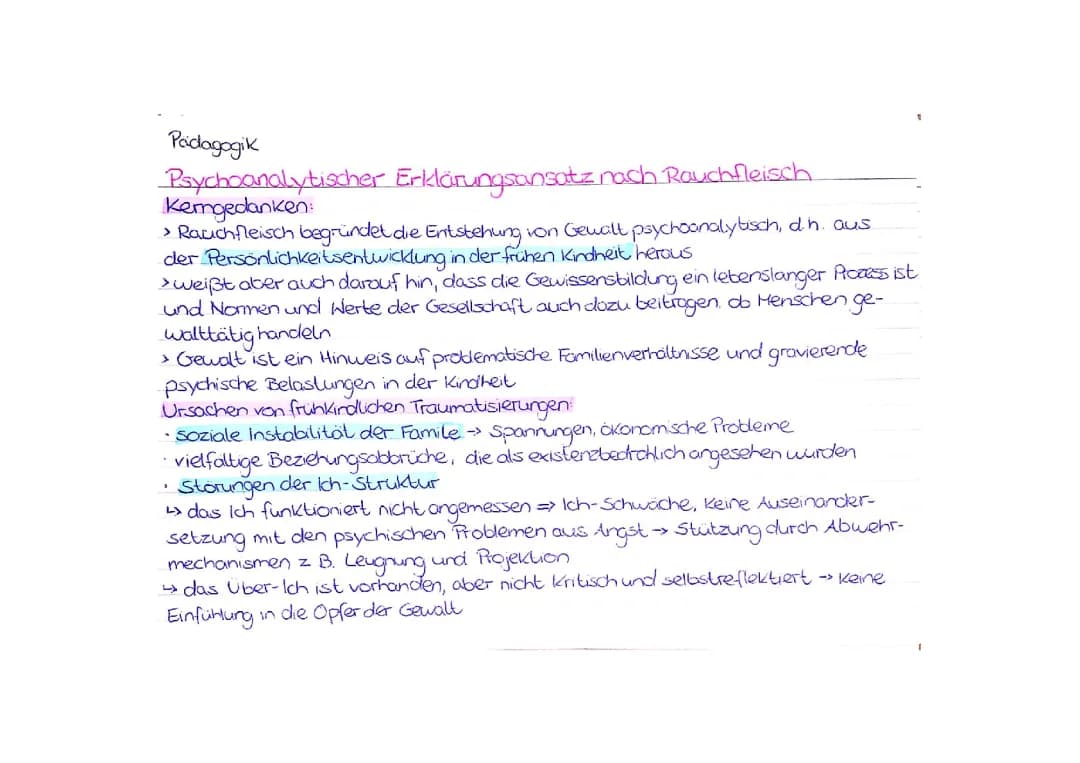 Pädagogik
Psychoanalytischer Erklärungsansatz nach Rauchfleisch
Kerngedanken:
> Rauchfleisch begründet die Entstehung von Gewalt psychoanalytisch, d.h. aus
der Persönlichkeitsentwicklung in der frühen Kindheit heraus
> weißt aber auch darauf hin, dass die Gewissensbildung ein lebenslanger Prozess ist
und Normen und Werte der Gesellschaft auch dazu beitragen, ob Menschen ge-
walttätig handeln
> Gewalt ist ein Hinweis auf problematische Familienverhältnisse und gravierende
psychische Belastungen in der Kindheit
Ursachen von frühkindlichen Traumatisierungen:
· soziale Instabilität der Familie -> Spannungen, ökonomische Probleme
· vielfältige Beziehungsabbrüche, die als existenzbedrohlich angesehen wurden
· Störungen der Ich-Struktur
↳ das Ich funktioniert nicht angemessen => Ich-Schwäche, keine Auseinander-
setzung mit den psychischen Problemen aus Angst -> Stützung durch Abwehr-
mechanismen z.B. Leugnung und Projektion
↳ das Über-Ich ist vorhanden, aber nicht kritisch und selbstreflektiert -> keine
Einfühlung in die Opfer der Gewalt